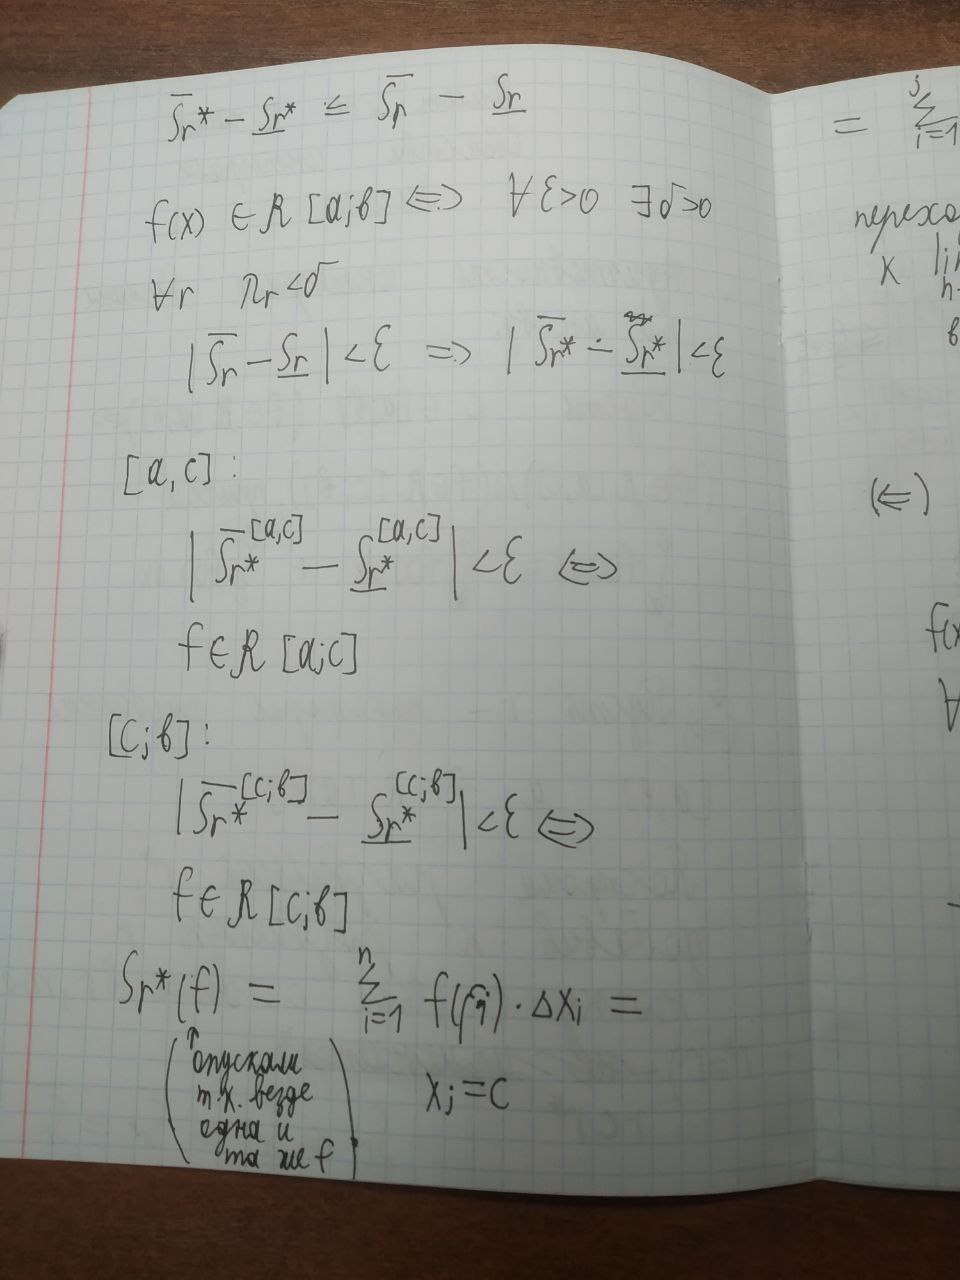 S̅r* − S̲r* ≤ S̅r − S̲r
f(x) ∈ R [a;b] ⇔ ∀ε>0 ∃δ>0
∀r λr<δ
|S̅r − S̲r| < ε ⇒ |S̅r* − S̲r*| < ε
[a,c]:
|S̅r*^[a,c] − S̲r*^[a,c]| < ε ⇔
f ∈ R [a;c]
[c;b]:
|S̅r*^[c;b] − S̲r*^[c;b]| < ε ⇔
f ∈ R [c;b]
Sr*(f) = ∑_{i=1}^{n} f(ξi) · Δxi =
(↑ опускали
т.к. везде
одна и
та же f)
xj = c
= ∑_{i=1}^{j}
к
(⇐)
∀